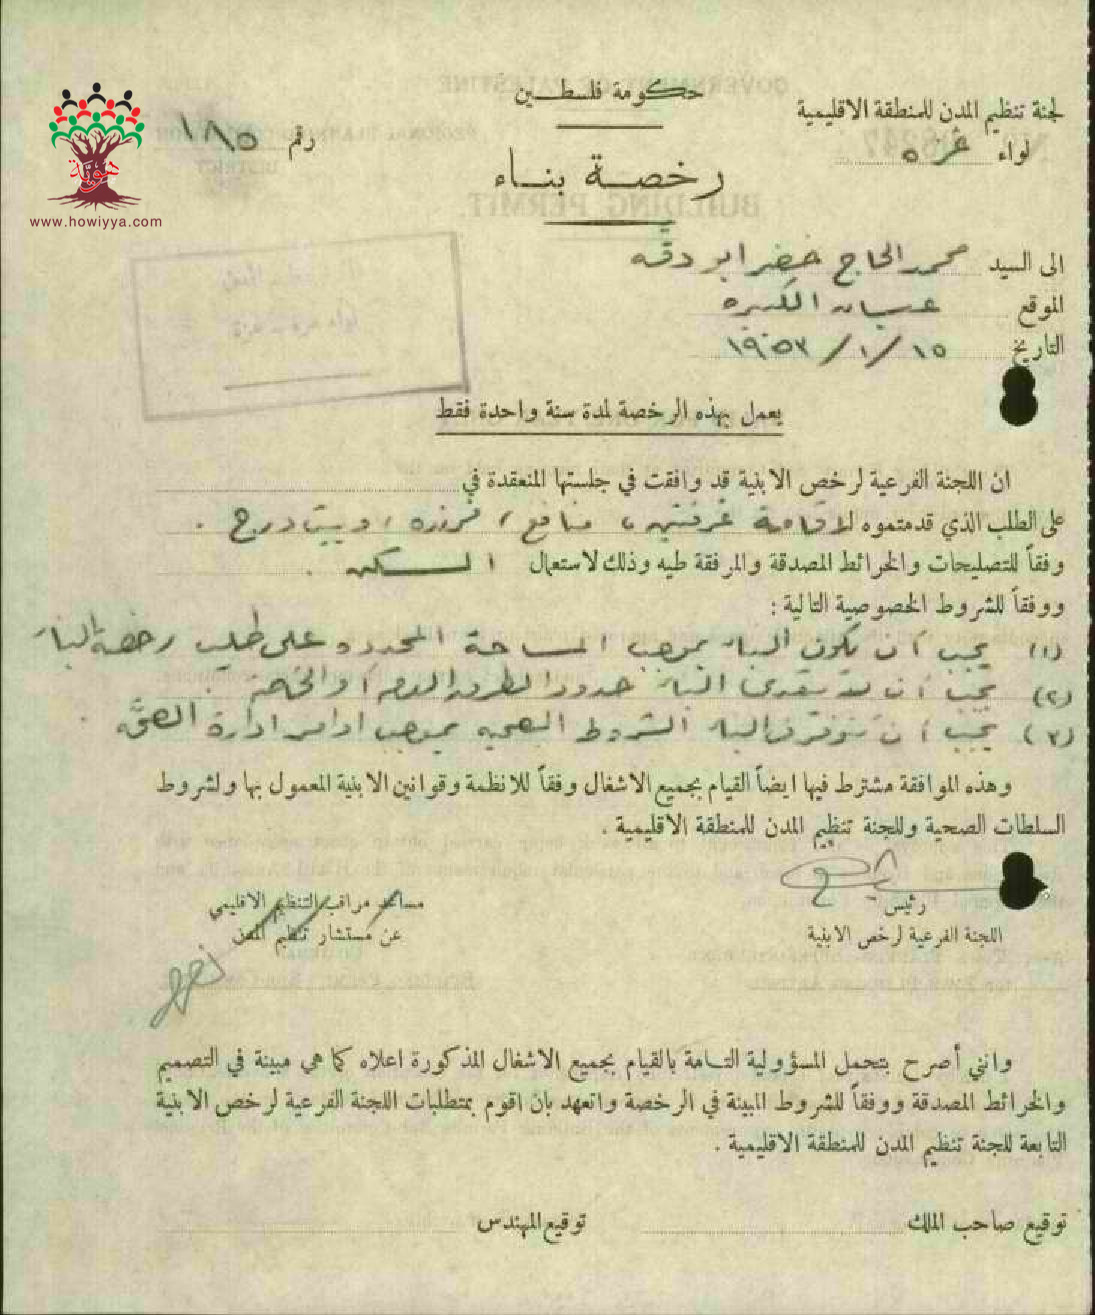 حكومة فلسطين
لجنة تنظيم المدن للمنطقة الاقليمية
لواء غزه
رقم ١٨٥
رخصة بناء
هوية
www.howiyya.com
الى السيد محمد الحاج خضر ابو دقه
الموقع عبسان الكبيره
التاريخ ١٥/١/١٩٥٣
يعمل بهذه الرخصة لمدة سنة واحدة فقط
ان اللجنة الفرعية لرخص الابنية قد وافقت في جلستها المنعقدة في
على الطلب الذي قدمتموه لاقامة غرفتين، منافع، فرنده، وبيت درج .
وفقاً للتصليحات والخرائط المصدقة والمرفقة طيه وذلك لاستعمال السكن .
ووفقاً للشروط الخصوصية التالية :
(١) يجب أن يكون البناء بموجب المساحة المحدده على طلب رخصة البناء
(٢) يجب أن لا يتعدى البناء حدود الطريق العام أو الخاص .
(٣) يجب أن تتوفر في البناء الشروط الصحيه بموجب اوامر ادارة الصحة .
وهذه الموافقة مشترط فيها ايضاً القيام بجميع الاشغال وفقاً للانظمة وقوانين الابنية المعمول بها ولشروط
السلطات الصحية وللجنة تنظيم المدن للمنطقة الاقليمية .
رئيس
اللجنة الفرعية لرخص الابنية
مساعد مراقب التنظيم الاقليمي
عن مستشار تنظيم المدن
وانني أصرح بتحمل المسؤولية التامة بالقيام بجميع الاشغال المذكورة اعلاه كما هي مبينة في التصميم
والخرائط المصدقة ووفقاً للشروط المبينة في الرخصة واتعهد بان اقوم بمتطلبات اللجنة الفرعية لرخص الابنية
التابعة للجنة تنظيم المدن للمنطقة الاقليمية .
توقيع صاحب الملك
توقيع المهندس